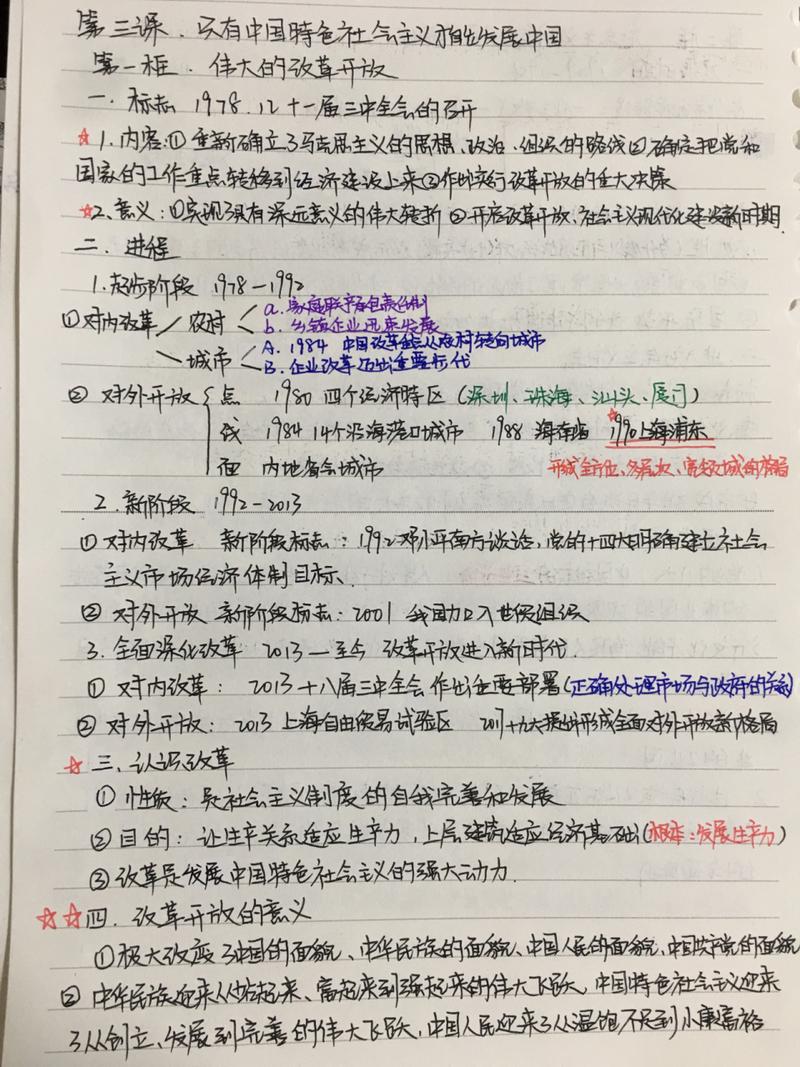 第三课.只有中国特色社会主义才能发展中国
第一框.伟大的改革开放
一.标志 1978.12 十一届三中全会的召开
☆1.内容:①重新确立了马克思主义的思想、政治、组织的路线②确定把党和
国家的工作重点转移到经济建设上来③作出实行改革开放的重大决策
☆2、意义:①实现了具有深远意义的伟大转折 ②开启改革开放、社会主义现代化建设新时期.
二.进程
1.起步阶段 1978—1992
①对内改革 农村 a.家庭联产承包责任制
b.乡镇企业迅速发展
城市 A.1984 中国改革重点从农村转向城市
B.企业改革迈出重要步伐
② 对外开放 点 1980 四个经济特区(深圳、珠海、汕头、厦门)
线 1984 14个沿海港口城市 1988 海南省 ☆1990上海浦东
面 内地省会城市 形成全方位、多层次、宽领域的格局
2.新阶段 1992-2013
①对内改革 新阶段标志:1992邓小平南方谈话,党的十四大明确建立社会
主义市场经济体制目标.
② 对外开放 新阶段标志:2001 我国加入世贸组织
3.全面深化改革 2013—至今 改革开放进入新时代.
① 对内改革: 2013十八届三中全会 作出重要部署(正确处理市场与政府的关系)
② 对外开放: 2013 上海自由贸易试验区 2017十九大提出形成全面对外开放新格局
☆ 三、认识改革
① 性质:是社会主义制度的自我完善和发展
② 目的:让生产关系适应生产力,上层建筑适应经济基础(根本:发展生产力)
③ 改革是发展中国特色社会主义的强大动力.
☆☆四.改革开放的意义
①极大改变了中国的面貌、中华民族的面貌、中国人民的面貌、中国共产党的面貌
② 中华民族迎来从站起来、富起来到强起来的伟大飞跃、中国特色社会主义迎来
了从创立、发展到完善的伟大飞跃,中国人民迎来了从温饱不足到小康富裕